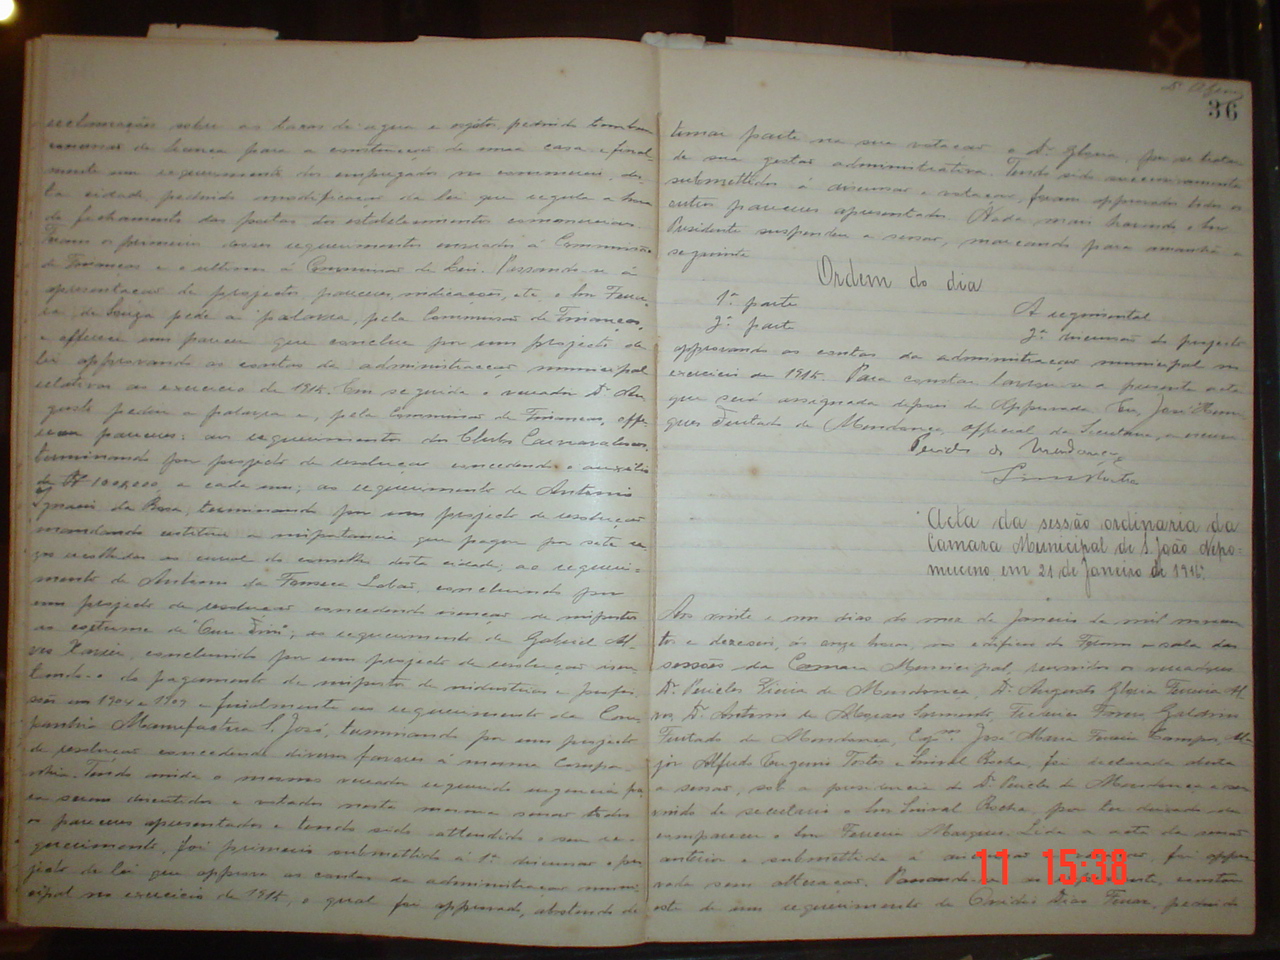 reclamações sobre as taxas de agua e exgotos, pedindo tambem
de licença para a construcção de uma casa e final-
mente um requerimento dos empregados no commercio, des-
ta cidade, pedindo modificação da lei que regula a hora
do fechamento das portas dos estabelecimentos commerciaes.
Foram os primeiros desses requerimentos enviados á Commissão
de Finanças e o ultimo á Commissão de Leis. Passando-se á
apresentação de projectos, pareceres, indicações, etc o Snr Ferrei-
ra de Souza pede a palavra, pela Commissão de Finanças,
e offerece um parecer que conclue por um projecto de
lei approvando as contas da administração municipal
relativas ao exercicio de 1915. Em seguida o vereador Dr. Au-
gusto pediu a palavra e, pela Commissão de Finanças, offe-
receu pareceres: ao requerimento dos Clubs Carnavalescos,
terminando por projecto de resolução concedendo o auxilio
de 100\$000, a cada um; ao requerimento de Antonio
Ignacio da Rosa, terminando por um projecto de resolução
mandando restituir a importancia que pagou por sete
recolhidos ao curral do conselho desta cidade; ao requeri-
mento de Antonio da Fonseca Lobão, concluindo por
um projecto de resolução concedendo isenção de impostos
ao; ao requerimento de Gabriel Al-
ves, concluindo por um projecto de resolução isen-
tando-o do pagamento de imposto de industrias e profis-
sões em 1908 e 1909 e finalmente ao requerimento da Com-
panhia Manufactora S. José, terminando por um projecto
de resolução concedendo diversos favores á mesma Compa-
nhia. Tendo ainda o mesmo vereador requerido urgencia pa-
ra serem discutidos e votados nesta mesma sessão todos
os pareceres apresentados e tendo sido attendido o seu re-
querimento, foi primeiro submettido á 1ª discussão o pro-
jecto de lei que approva as contas da administração muni-
cipal no exercicio de 1915, o qual foi approvado, abstendo-se
36
tomar parte na sua votação o Dr. Gloria, por se tratar
de sua gestão administrativa. Tendo sido successivamente
submettidos á discussão e votação, foram approvados todos os
outros pareceres apresentados. Nada mais havendo o Snr
Presidente suspendeu a sessão, marcando para amanhã a
seguinte
Ordem do dia
1ª parte A regimental
2ª parte 2ª discussão do projecto
approvando as contas da administração municipal no
exercicio de 1915. Para constar lavrou-se a presente acta
que será assignada depois de approvada. Eu, José Hen-
riques Furtado de Mendonça, official da Secretaria, a escrevi
Pericles de Mendonça
Acta da sessão ordinaria da
Camara Municipal de S. João Nepo-
muceno em 21 de Janeiro de 1916.
Aos vinte e um dias do mez de Janeiro de mil novecen-
tos e dezeseis, ás onze horas, no edificio do Forum e sala das
sessões da Camara Municipal, reunidos os vereadores
Dr. Pericles Vieira de Mendonça, Dr. Augusto Gloria Ferreira Al-
ves, Dr. Antonio de Moraes Sarmento, Galdino
Furtado de Mendonça, José Maria Campos, Ma-
jor Alfredo Eugenio Tostes e Rocha, foi declarada aberta
a sessão, sob a presidencia do Dr. Pericles de Mendonça e ser-
vindo de secretario o Snr Rocha, por ter deixado de
comparecer o Snr Ferreira Marques. Lida a acta da sessão
anterior e submettida á discussão e votação, foi appro-
vada sem alteração. Passando-se ao expediente, constou
este de um requerimento de Ovidio Dias, pedindo
11 15:38